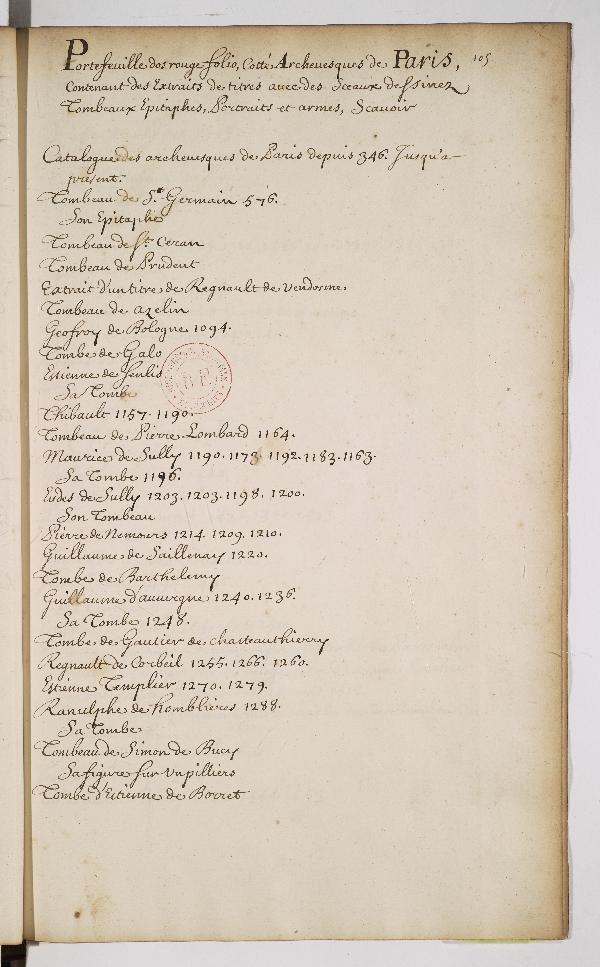 Portefeuille dos rouge folio, Cotté Archeuesques de Paris, 105
Contenant des Extraits de titres auec des Sceaux dessinez
Tombeaux Epitaphes, Portraits et armes, Scauoir
Catalogue des archeuesques de Paris depuis 346. Jusqu'a
present.
Tombeau de St. Germain 576.
Son Epitaphe
Tombeau de St. Ceran
Tombeau de Prudent
Extrait d'un titre de Regnault de Vendosme
Tombeau de azelin
Geofroy de Bologne 1094.
Tombe de Galo
Estienne de Senlis
Sa Tombe
Thibault 1157. 1190.
Tombeau de Pierre Lombard 1164.
Maurice de Sully 1190. 1173. 1192. 1183. 1163.
Sa Tombe 1196.
Eudes de Sully 1203. 1203. 1198. 1200.
Son Tombeau
Pierre de Nemours 1214. 1209. 1210.
Guillaume de Saillenay 1220.
Tombe de Barthelemy
Guillaume d'auuergne 1240. 1236.
Sa Tombe 1248.
Tombe de Gautier de chasteauthierry
Regnault de Corbeil 1255. 1266. 1260.
Estienne Templier 1270. 1279.
Ranulphe de homblieres 1288.
Sa Tombe
Tombeau de Simon de Bucy
Sa figure sur un pilliers
Tombe d'Estienne de Borret